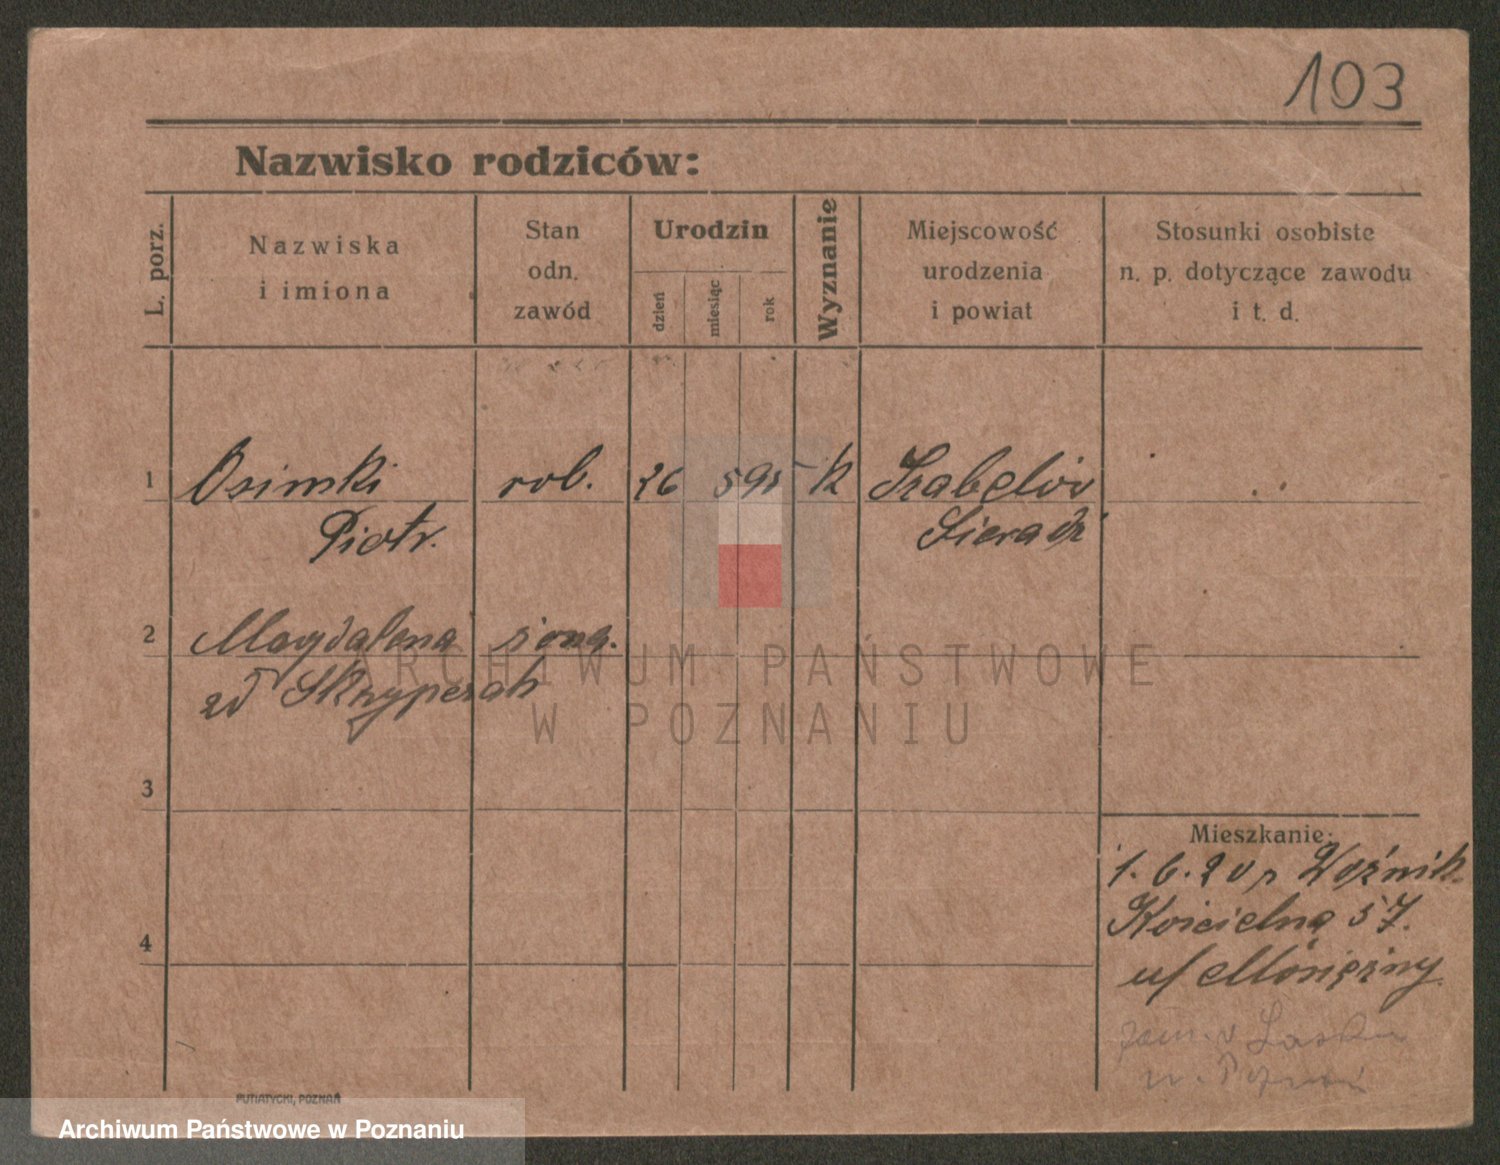 103
Nazwisko rodziców:
L. porz.
Nazwiska
i imiona
Stan
odn.
zawód
Urodzin
dzień
miesiąc
rok
Wyznanie
Miejscowość
urodzenia
i powiat
Stosunki osobiste
n. p. dotyczące zawodu
i t. d.
1 Osimski rob. 26 5 95 k Izabelów
Piotr. Sieradz
2 Magdalena żona.
ARCHIWUM PAŃSTWOWE
zd Skrzypczak
W POZNANIU
3
Mieszkanie:
1. 6. 20 r Woźnik.
Kościelna 57.
4
u/ Mosiężny
zam. w Lasku
p. Poznań
PUTIATYCKI, POZNAŃ
Archiwum Państwowe w Poznaniu